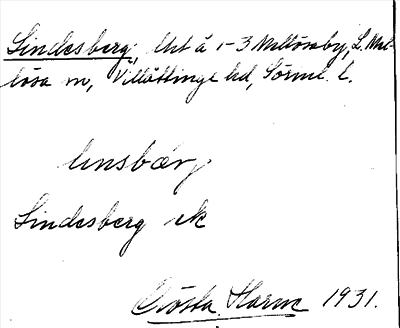 Lindesberg, lht å 1-3 Mellösaby, L. Mel-
lösa sn, Villåttinge hd, Sörml. l.
linsbærj
Lindesberg ek
Gösta Harne 1931.